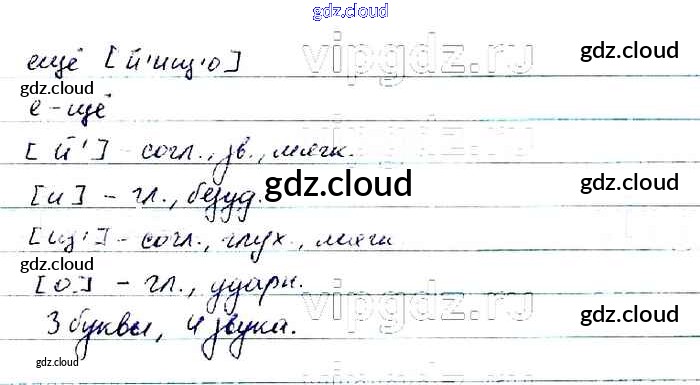 gdz.cloud
vipgdz.ru
gdz.cloud
ещё [й'ищ'о]
gdz.cloud
е-щё
vipgdz.ru
[й'] - согл., зв., мягк.
gdz.cloud
gdz.cloud
[и] - гл., безуд.
[щ'] - согл., глух., мягк
gdz.cloud
[о] - гл., ударн.
vipgdz.ru
3 буквы, 4 звука.
gdz.cloud
gdz.cloud
vipgdz.ru